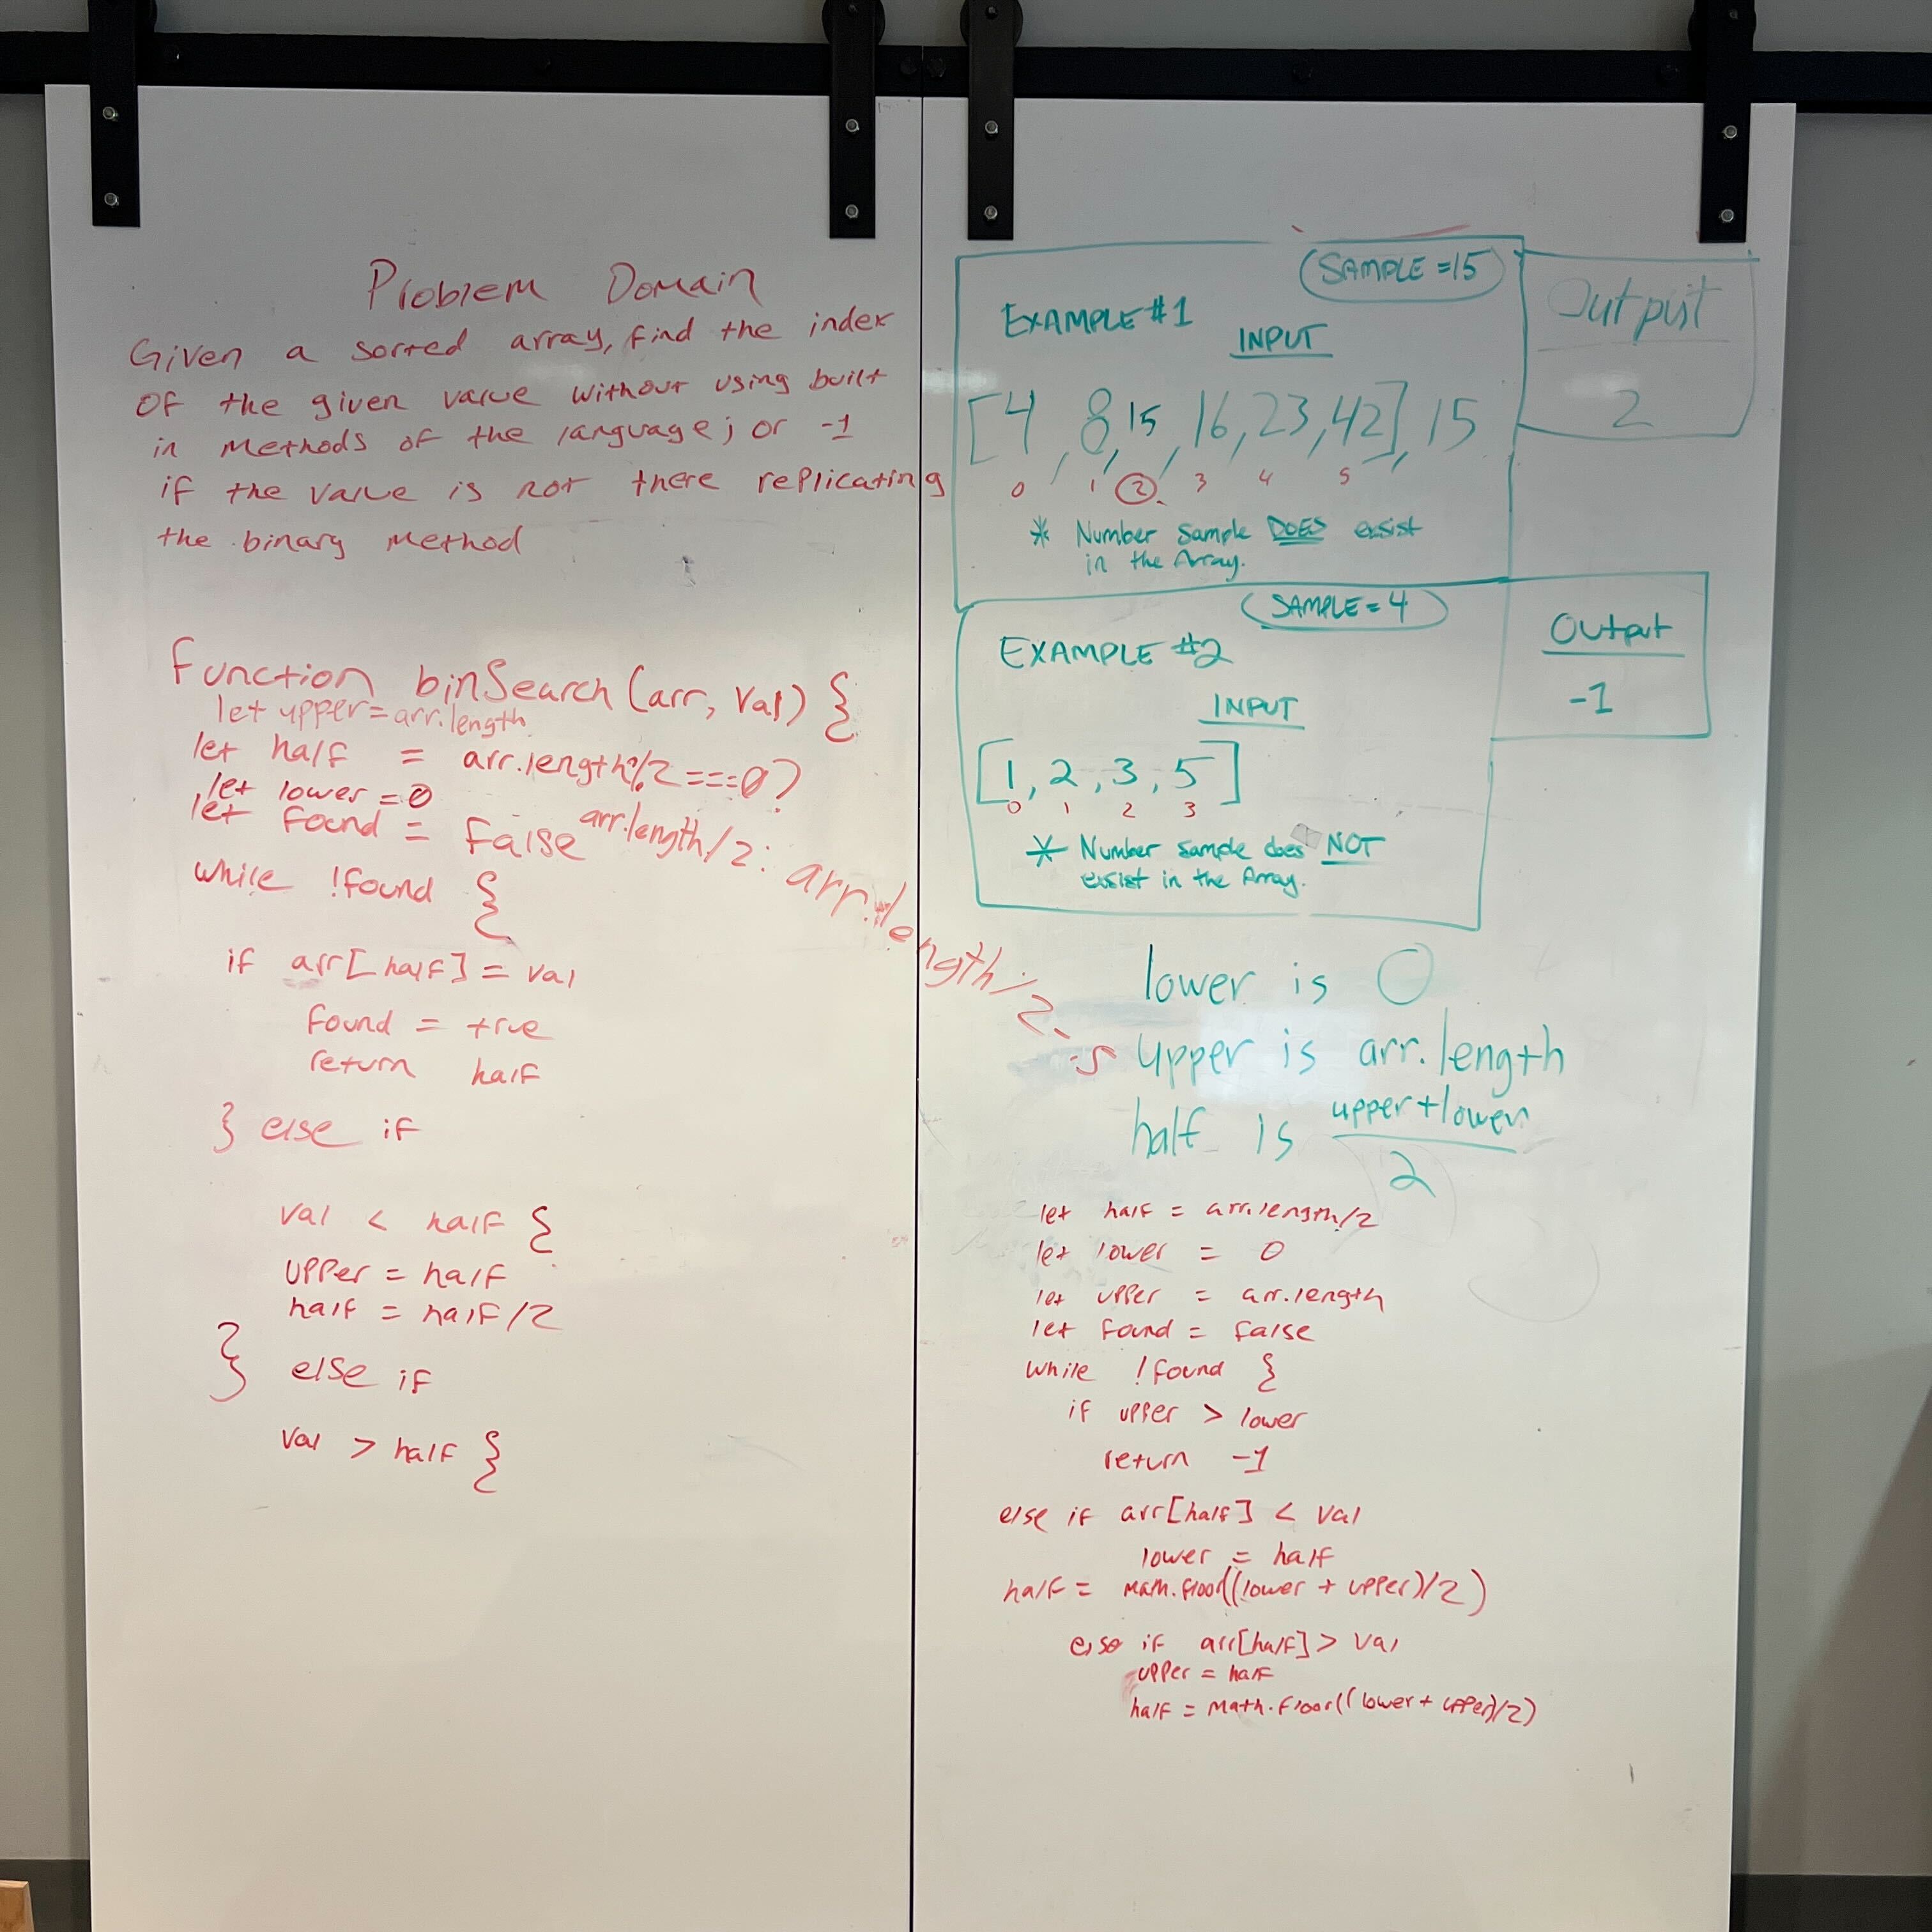 Problem Domain
Given a sorted array, find the index
of the given value without using built
in methods of the language; or -1
if the value is not there replicating
the binary method
function binSearch (arr, val) {
let upper = arr.length
let half = arr.length%2===0?
let lower = 0
let found = false arr.length/2: arr.length/2-.5
while !found {
if arr[half] = val
found = true
return half
} else if
val < half {
upper = half
half = half/2
} else if
val > half {
SAMPLE = 15
EXAMPLE #1
INPUT
[4, 8, 15, 16, 23, 42], 15
0 1 2 3 4 5
* Number Sample DOES exsist
in the Array.
Output
2
SAMPLE = 4
EXAMPLE #2
INPUT
[1, 2, 3, 5]
0 1 2 3
* Number sample does NOT
exsist in the Array.
Output
-1
lower is 0
upper is arr.length
half is upper+lower
2
let half = arr.length/2
let lower = 0
let upper = arr.length
let found = false
while !found {
if upper > lower
return -1
else if arr[half] < val
lower = half
half = math.floor((lower + upper)/2)
else if arr[half] > val
upper = half
half = math.floor((lower + upper)/2)